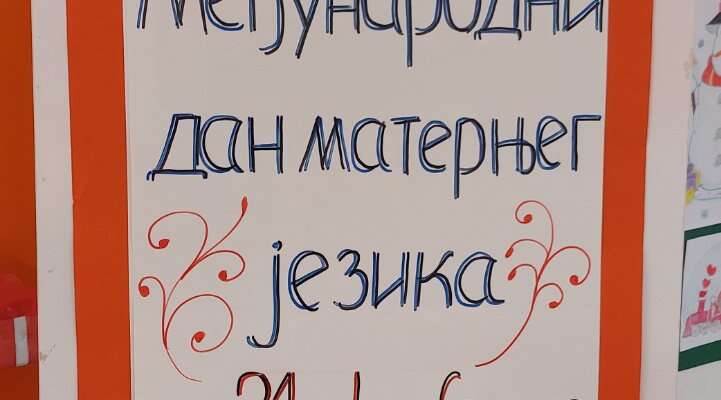 Међународни
дан матерњег
језика
21.